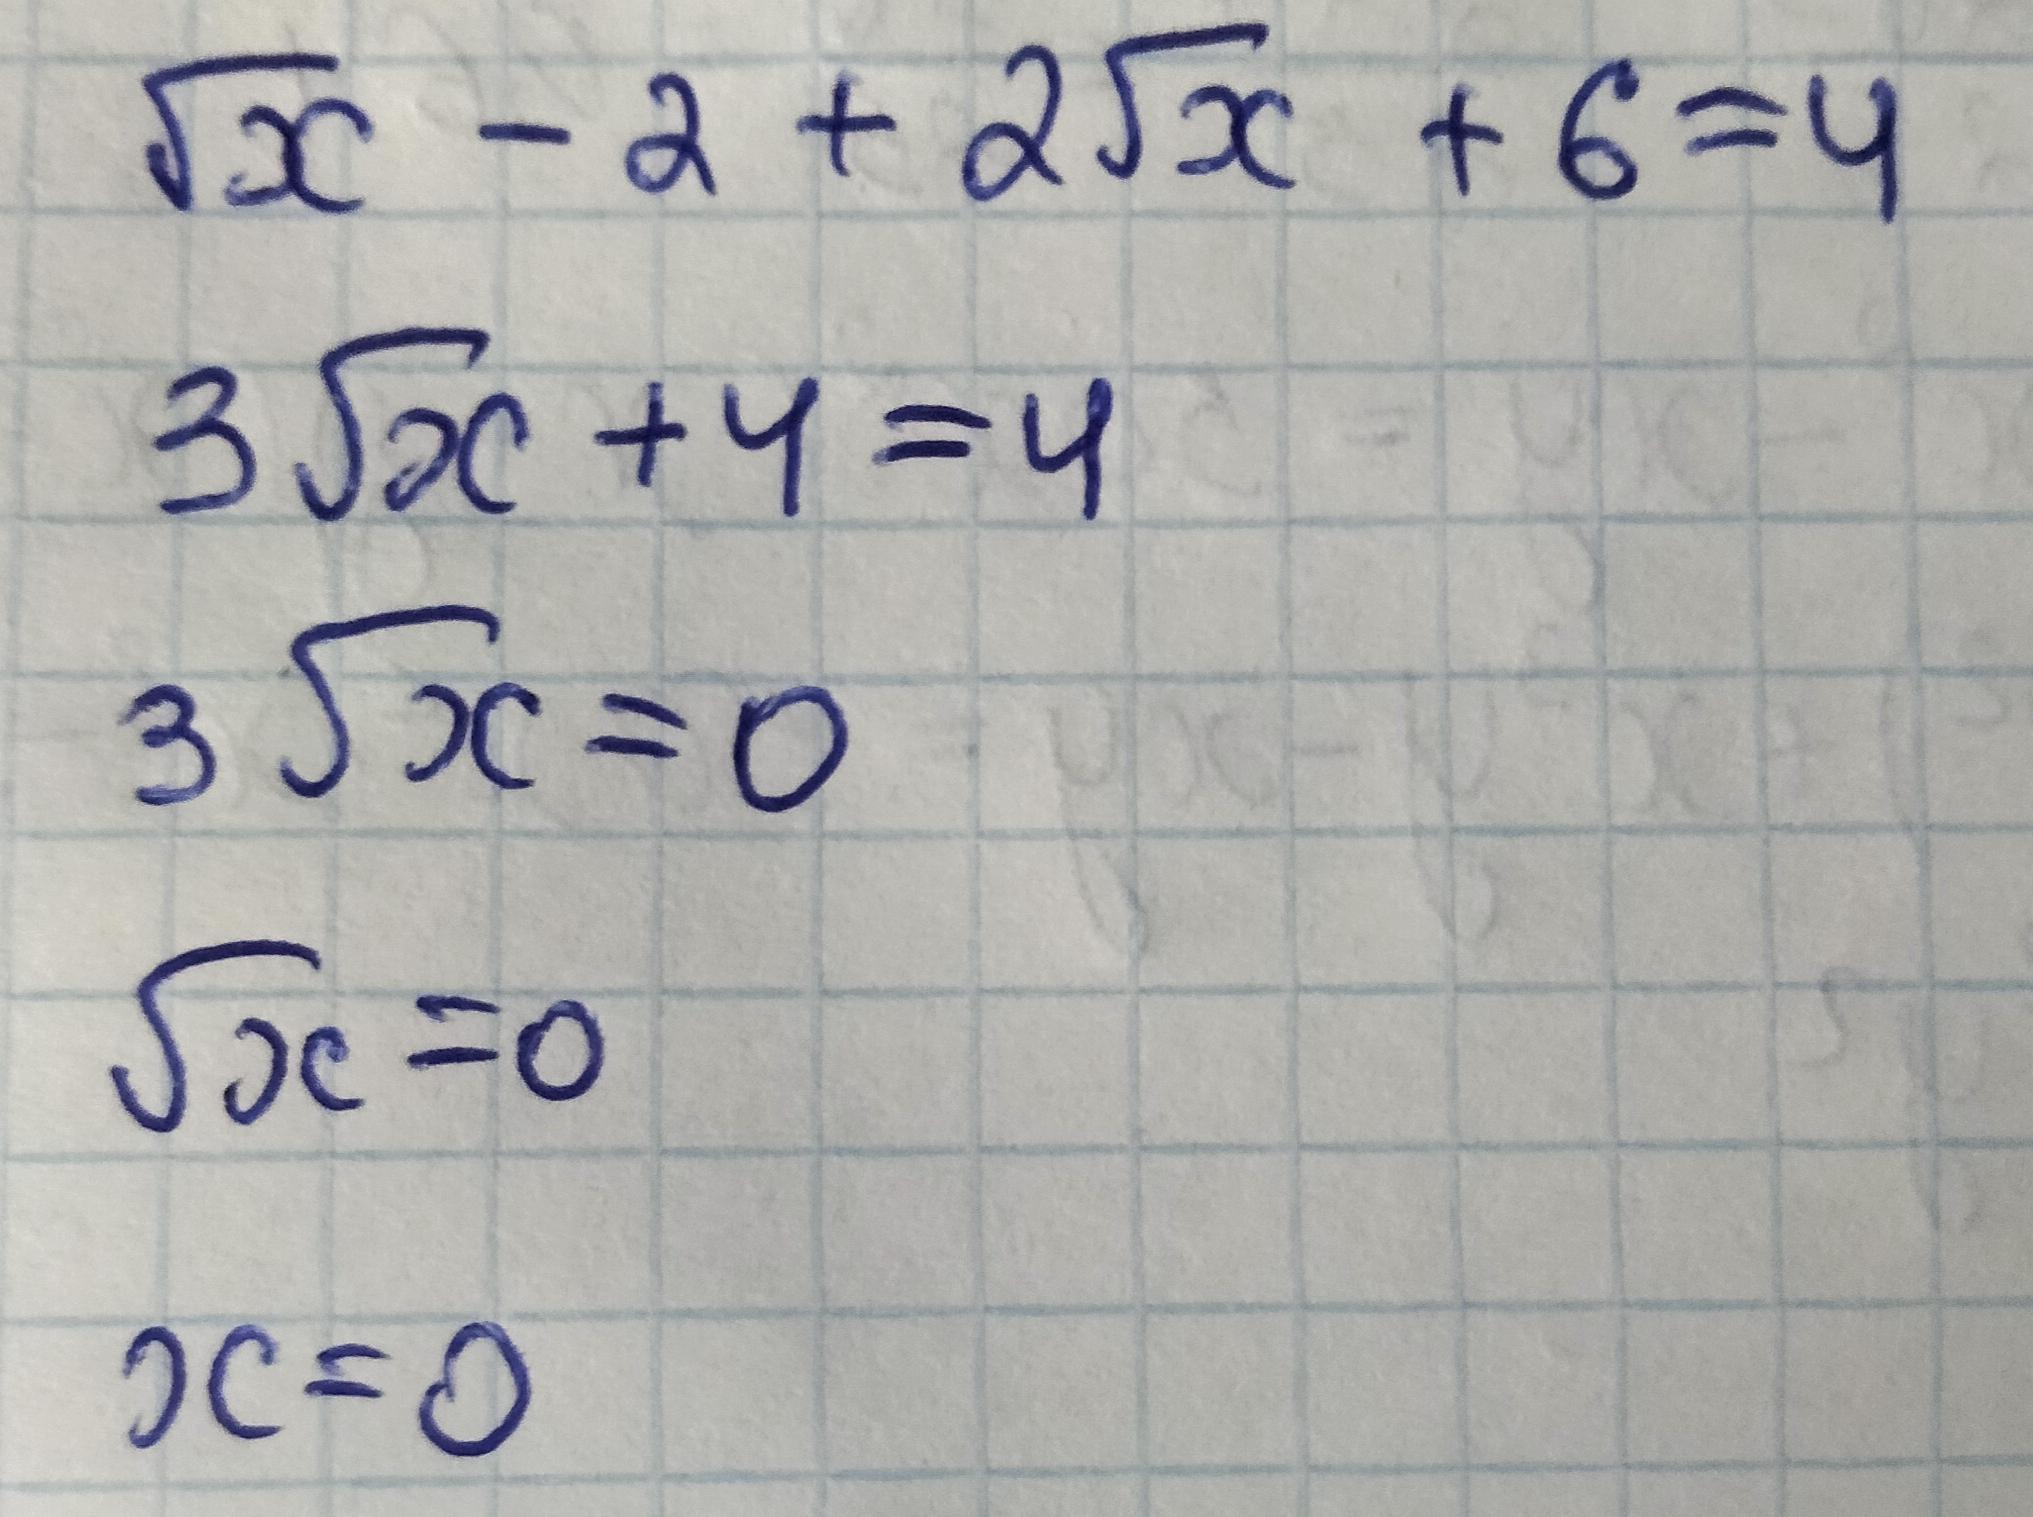 √x - 2 + 2√x + 6 = 4
3√x + 4 = 4
3√x = 0
√x = 0
x = 0